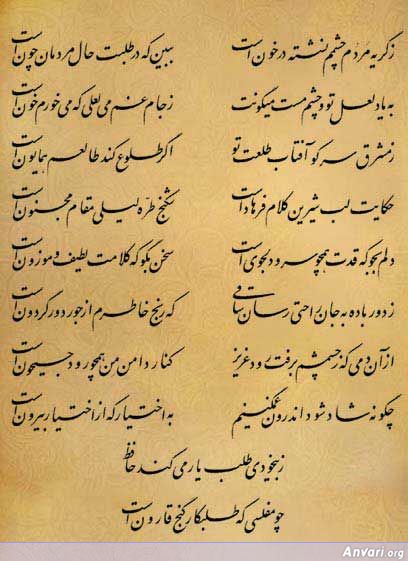 ز گریه مردم چشمم نشسته در خون است ببین که در طلبت حال مردمان چون است
به یاد لعل تو و چشم مست میگونت ز جام غم می لعلی که می‌خورم خون است
ز مشرق سر کو آفتاب طلعت تو اگر طلوع کند طالعم همایون است
حکایت لب شیرین کلام فرهاد است شکنج طره لیلی مقام مجنون است
دلم بجو که قدت همچو سرو دلجوی است سخن بگو که کلامت لطیف و موزون است
ز دور باده به جان راحتی رسان ساقی که رنج خاطرم از جور دور گردون است
از آن دمی که ز چشمم برفت رود عزیز کنار دامن من همچو رود جیحون است
چگونه شاد شود اندرون غمگینم به اختیار که از اختیار بیرون است
ز بیخودی طلب یار می‌کند حافظ
چو مفلسی که طلبکار گنج قارون است
Anvari.org